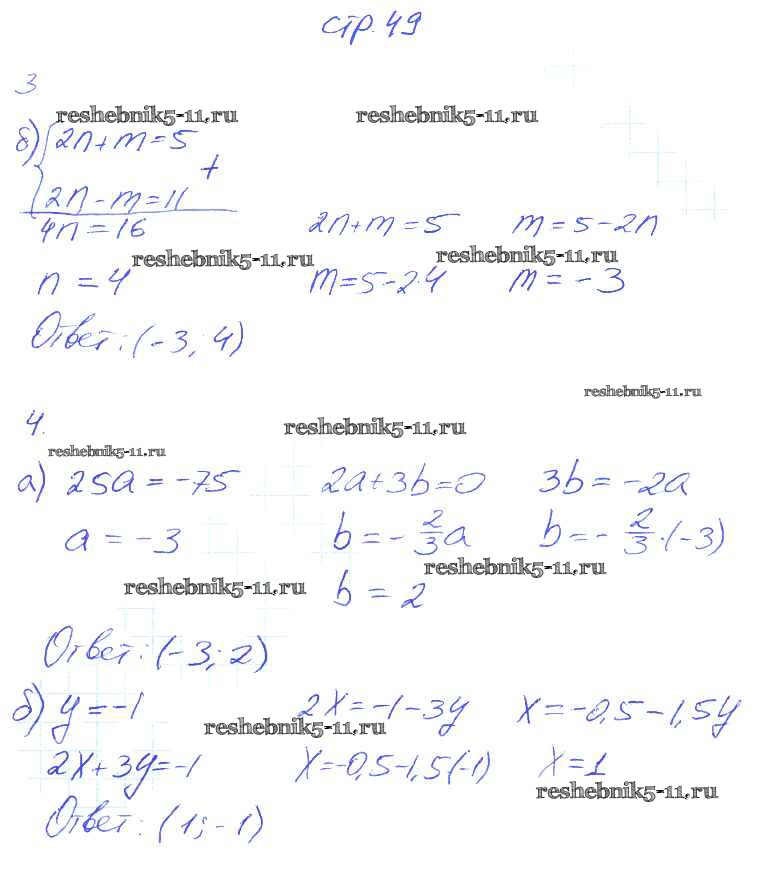 стр. 49
3
reshebnik5-11.ru reshebnik5-11.ru
б) { 2n + m = 5
+
2n - m = 11
4n = 16 2n + m = 5 m = 5 - 2n
reshebnik5-11.ru reshebnik5-11.ru
n = 4 m = 5 - 2·4 m = - 3
Ответ: (-3; 4)
reshebnik5-11.ru
4. reshebnik5-11.ru
reshebnik5-11.ru
а) 25a = -75 2a + 3b = 0 3b = -2a
a = -3 b = - 2/3 a b = - 2/3 · (-3)
reshebnik5-11.ru
reshebnik5-11.ru b = 2
Ответ: (-3; 2)
б) y = -1 2x = -1 - 3y x = -0,5 - 1,5y
reshebnik5-11.ru
2x + 3y = -1 x = -0,5 - 1,5(-1) x = 1
reshebnik5-11.ru
Ответ: (1; -1)